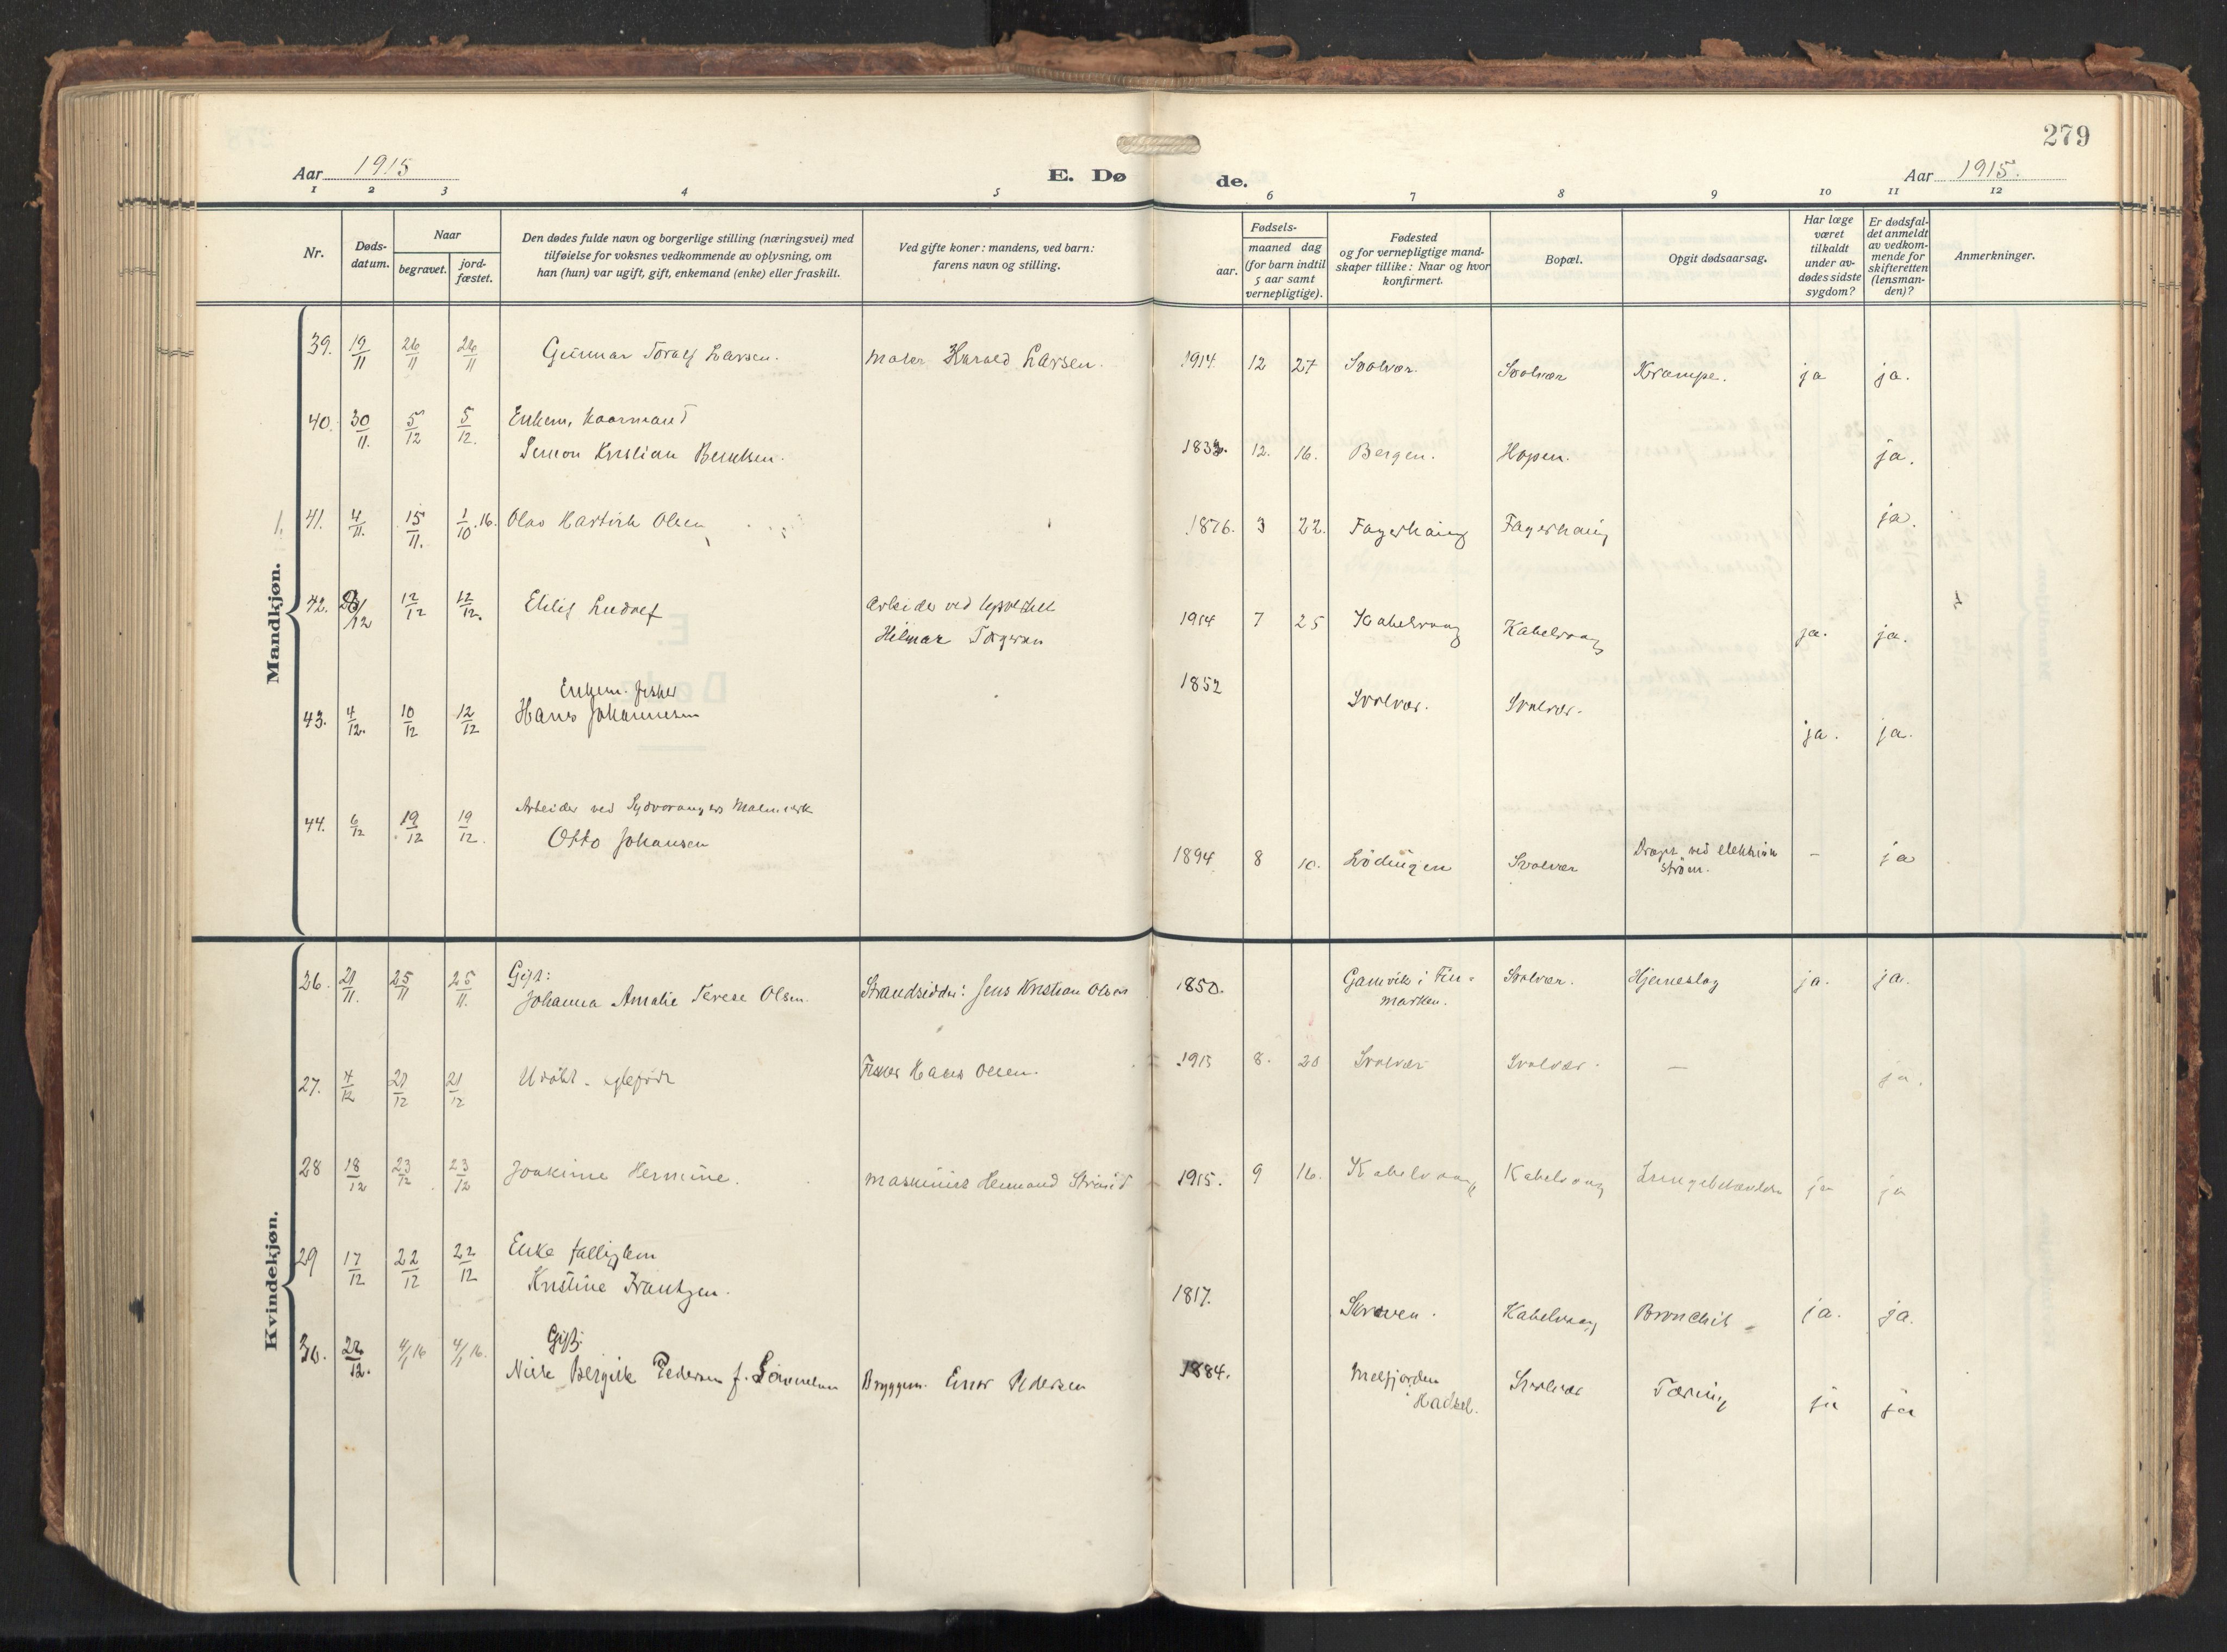 279
Aar 1915
E. Dø
de.
Aar 1915.
1 2 3 4 5 6 7 8 9 10 11 12
Nr.
Døds-
datum.
Naar
begravet.
jord-
fæstet.
Den dødes fulde navn og borgerlige stilling (næringsvei) med
tilføielse for voksnes vedkommende av oplysning, om
han (hun) var ugift, gift, enkemand (enke) eller fraskilt.
Ved gifte koner: mandens, ved barn:
farens navn og stilling.
Fødsels-
aar.
maaned dag
(for barn indtil
5 aar samt
vernepligtige).
Fødested
og for vernepligtige mand-
skaper tillike: Naar og hvor
konfirmert.
Bopæl.
Opgit dødsaarsag.
Har læge
været
tilkaldt
under av-
dødes sidste
sygdom?
Er dødsfal-
det anmeldt
av vedkom-
mende for
skifteretten
(lensman-
den)?
Anmerkninger.
Mandkjøn.
39. 19/11 26/11 26/11 Gunnar Toralf Larsen. Maler Harald Larsen. 1914. 12 27 Svolvær. Svolvær Krampe. ja ja.
40. 30/11. 5/12 5/12. Enkem, Kaarmand
Simon Kristian Berntsen. 12. 16. Bergen. Hopen. ja.
1. 41. 4/11. 15/11. 1/10.16. Olav Hartvik Olsen 1876. 3 22. ja.
42. 12/12 12/12. Ludolf Arbeider ved
Hilmar 1914 7 25 Kabelvaag Kabelvaag ja. ja.
43. 4/12. 10/12 12/12 Enkem. fisker
Hans Johannesen 1852 Svolvær. Svolvær. ja. ja.
44. 6/12 19/12 19/12. Arbeider ved Sydvarangers Malmverk
Otto Johansen 1894 8 10. Lödingen Svolvær Dræpt ved elektrisk
ström. – ja
Kvindekjøn.
26. 21/11. 25/11 25/11. Gift:
Johanna Amalie Terese Olsen. Strandsidder: Jens Kristian Olsen 1850. Gamvik i Fin-
marken. Svolvær. Hjerneslag ja. ja.
27. 4/12 21/12 21/12 Udöbt. Fisker Hans Olsen. 1915 8. 20 Svolvær Svolvær. — ja.
28 18/12 23/12 23/12 Joakime Hermine. Maskinist 1915. 9 16. Kabelvaag Kabelvaag ja ja
29 17/12 22/12 22/12 Enke fattiglem
Kristine Frantzen. 1817. Skroven. Kabelvaag Bronchit ja. ja.
30. 4/1 16 4/1 16. Gift:
Pedersen f. Bryggem. Pedersen 1884. Melfjorden
Hadsel. Svolvær Tæring ja ja